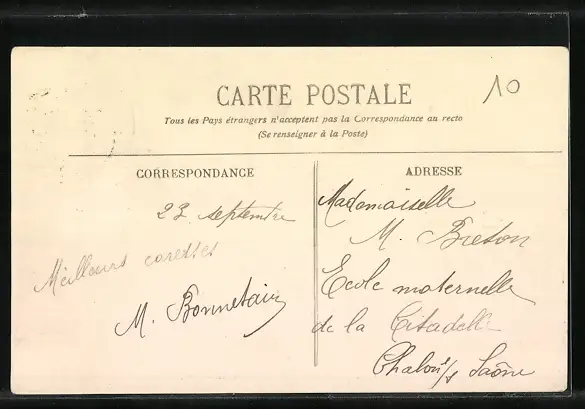 CARTE POSTALE
10
Tous les Pays étrangers n'acceptent pas la Correspondance au recto
(Se renseigner à la Poste)
CORRESPONDANCE
23 septembre
Meilleurs caresses
M. Bonnetain
ADRESSE
Mademoiselle
M. Breton
Ecole maternelle
de la Citadelle
Chalon s/ Saône